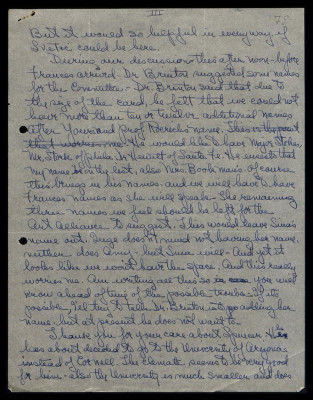 III
But it would so helpful in every way if
I etc. could be here.
During our discussion this after noon - before
Frances arrived - Dr. Brinton suggested some names
for the Committee. Dr. Brinton said that due to
the size of the card, he felt that we could not
have more than ten or twelve additional names
after Yours and Prof.
He would like to have
Mr. of Santa Fe. He insists that
my name be on the list, also Mrs. of course
this brings in his names - and we will have to have
Frances names as she will speak. The remaining
three names we feel should be left for the
Art Alliance to suggest. This would leave
name out. Inge doesn't mind not having her name,
neither does Amy, but will - And yet it
looks like we won't have the space. And this really
worries me. Am writing all this so you will
know ahead of time of the possible trouble. If its
possible, I'll try to talk Dr. Brinton into adding her
name - but at present he does not want to.
Thank you for your care about Spencer. He
has about decided to go to the University of Arizona
instead of Cornell. The climate seems to be very good
for him - Also the University is much smaller and does